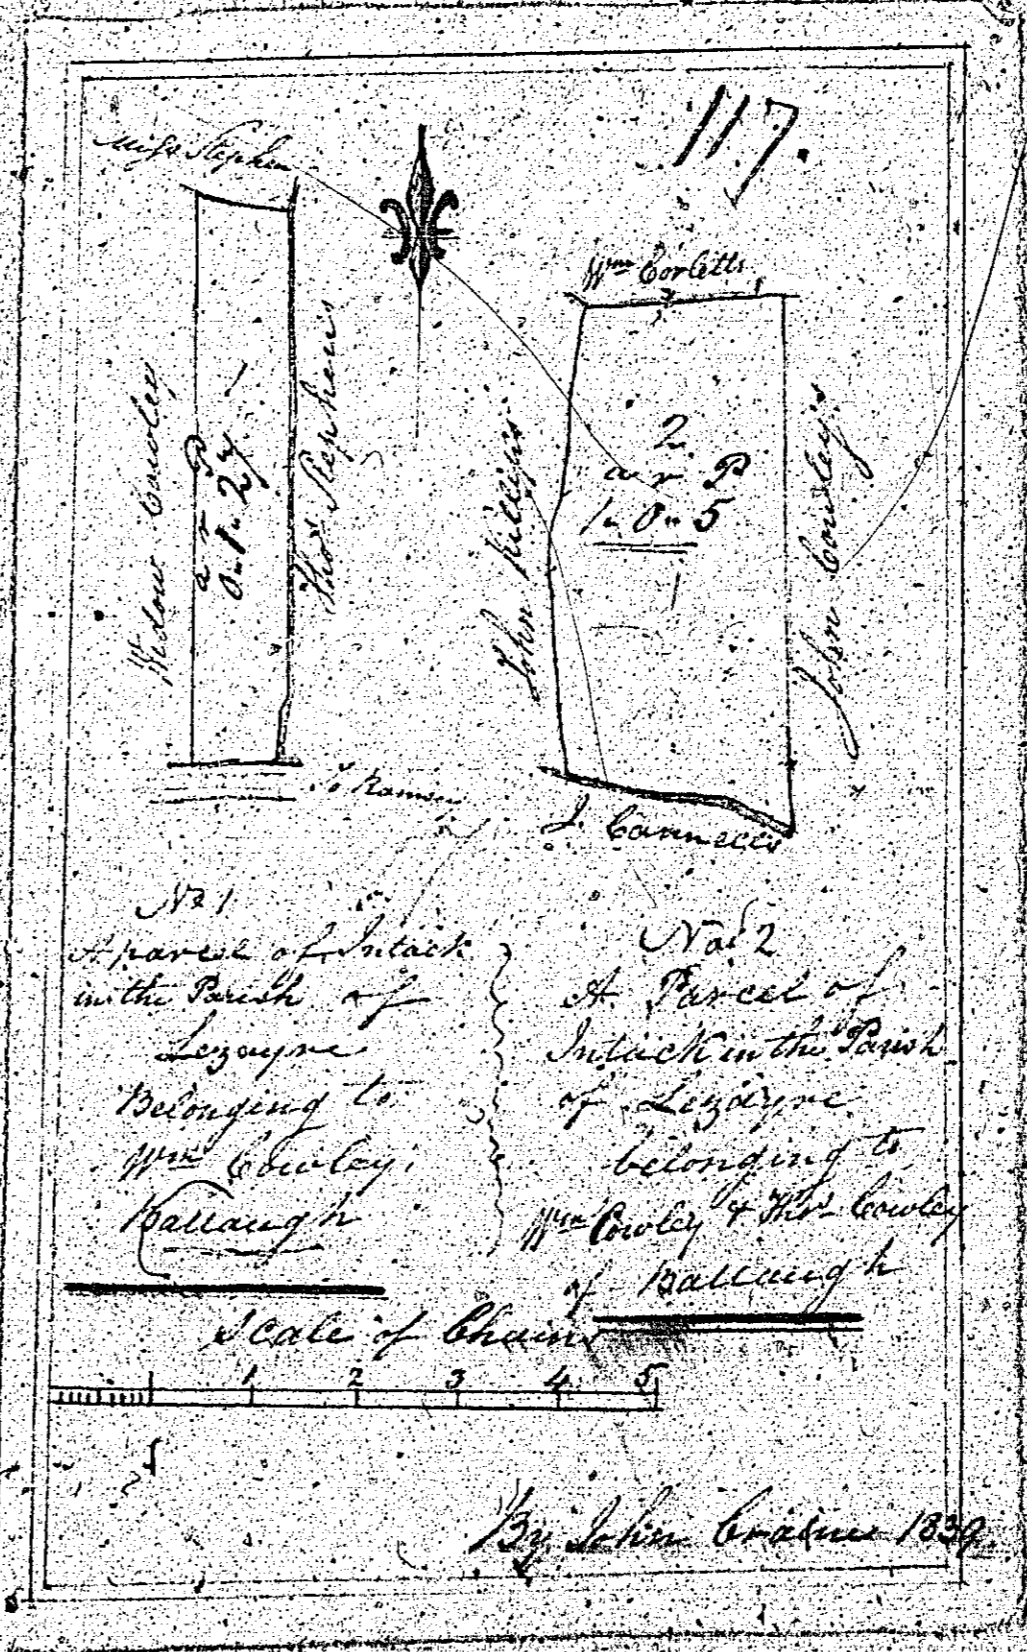 117.
Miss Stephen
Wm Corletts
Widow Cowley
1
a r P
0 " 1 " 27
Thos Stephens
John Killips
2
a r P
1 " 0 " 5
John Cowley's
To Ramsey
J. Cannells
No 1
A parcel of Intack
in the Parish of
Lezayre
Belonging to
Wm Cowley
Ballaugh
No 2
A Parcel of
Intack in the Parish
of Lezayre
belonging to
Wm Cowley & Thos Cowley
of Ballaugh
Scale of Chains
1 2 3 4 5
By John Craine 1839